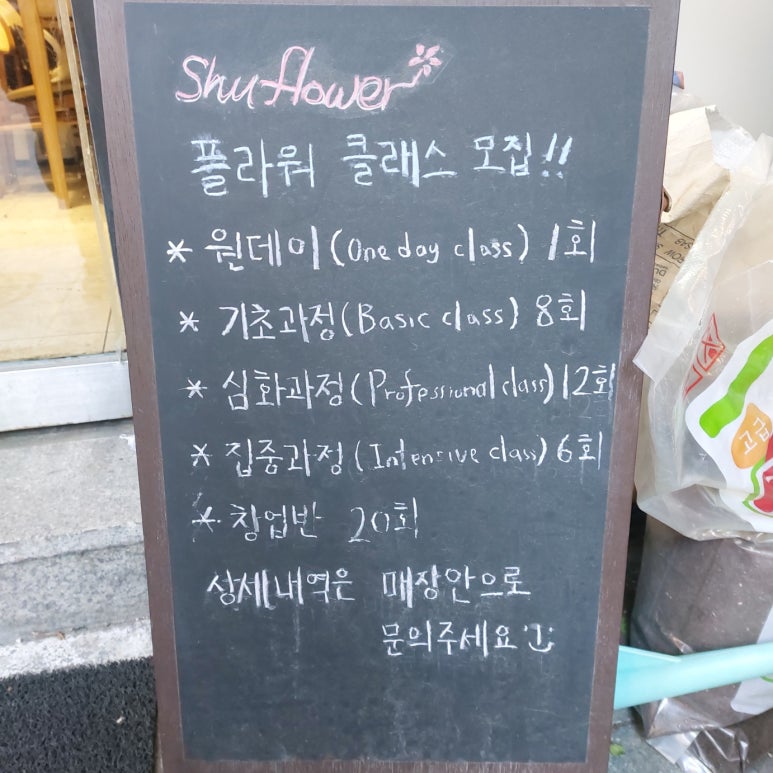 Shu flower
플라워 클래스 모집!!
* 원데이(One day class) 1회
* 기초과정(Basic class) 8회
* 심화과정(Professional class) 12회
* 집중과정(Intensive class) 6회
* 창업반 20회
상세내역은 매장안으로
문의주세요
고급